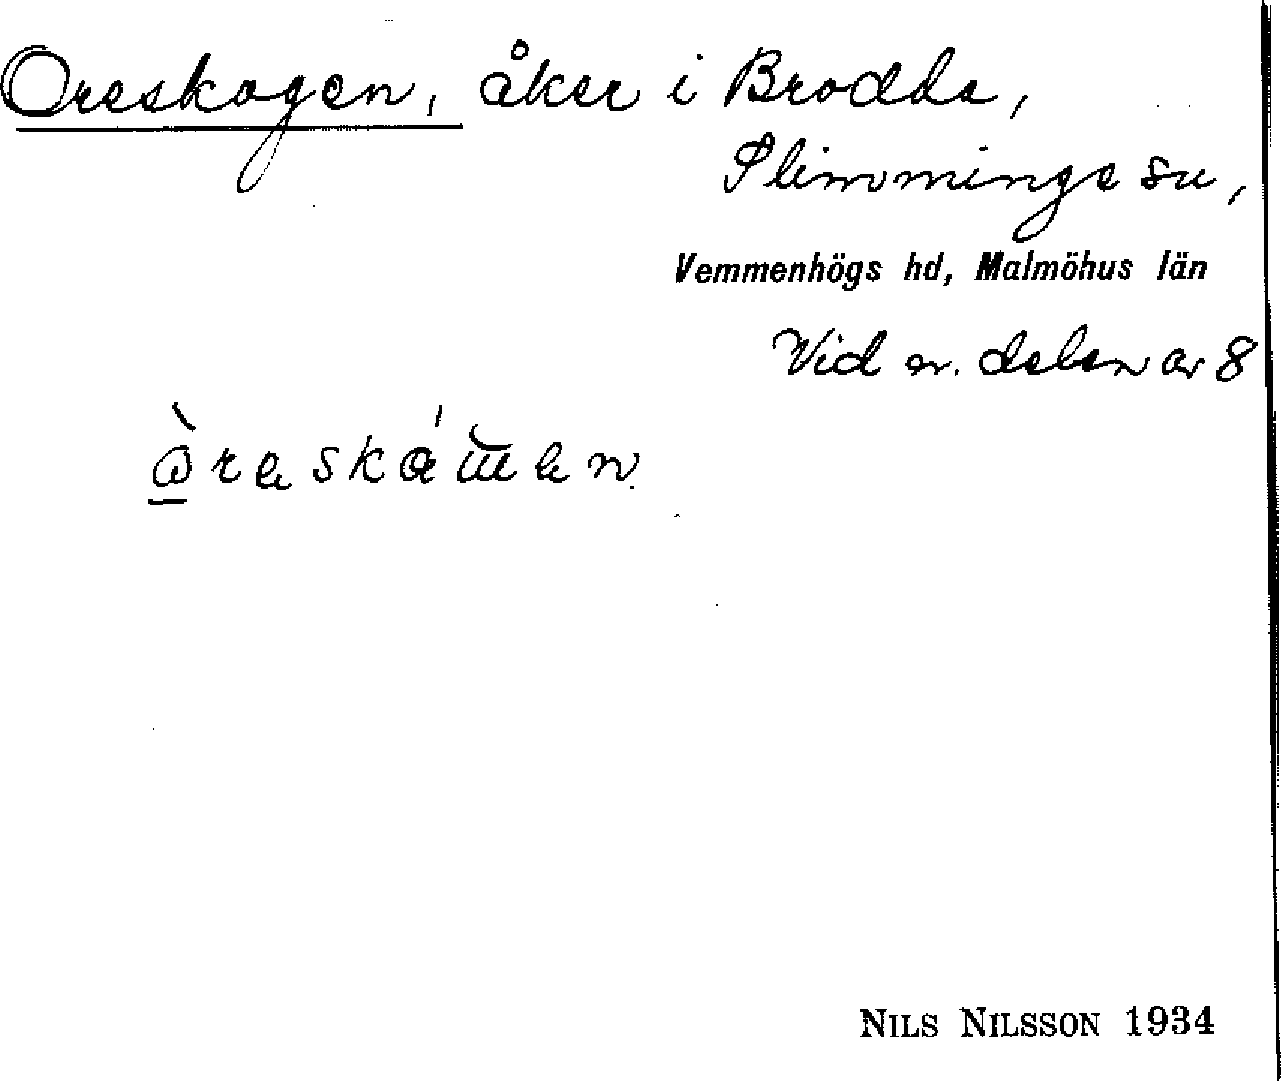 Oreskogen, åker i Brodda,
Slimminge sn,
Vemmenhögs hd, Malmöhus län
Vid n. delen av 8
NILS NILSSON 1934